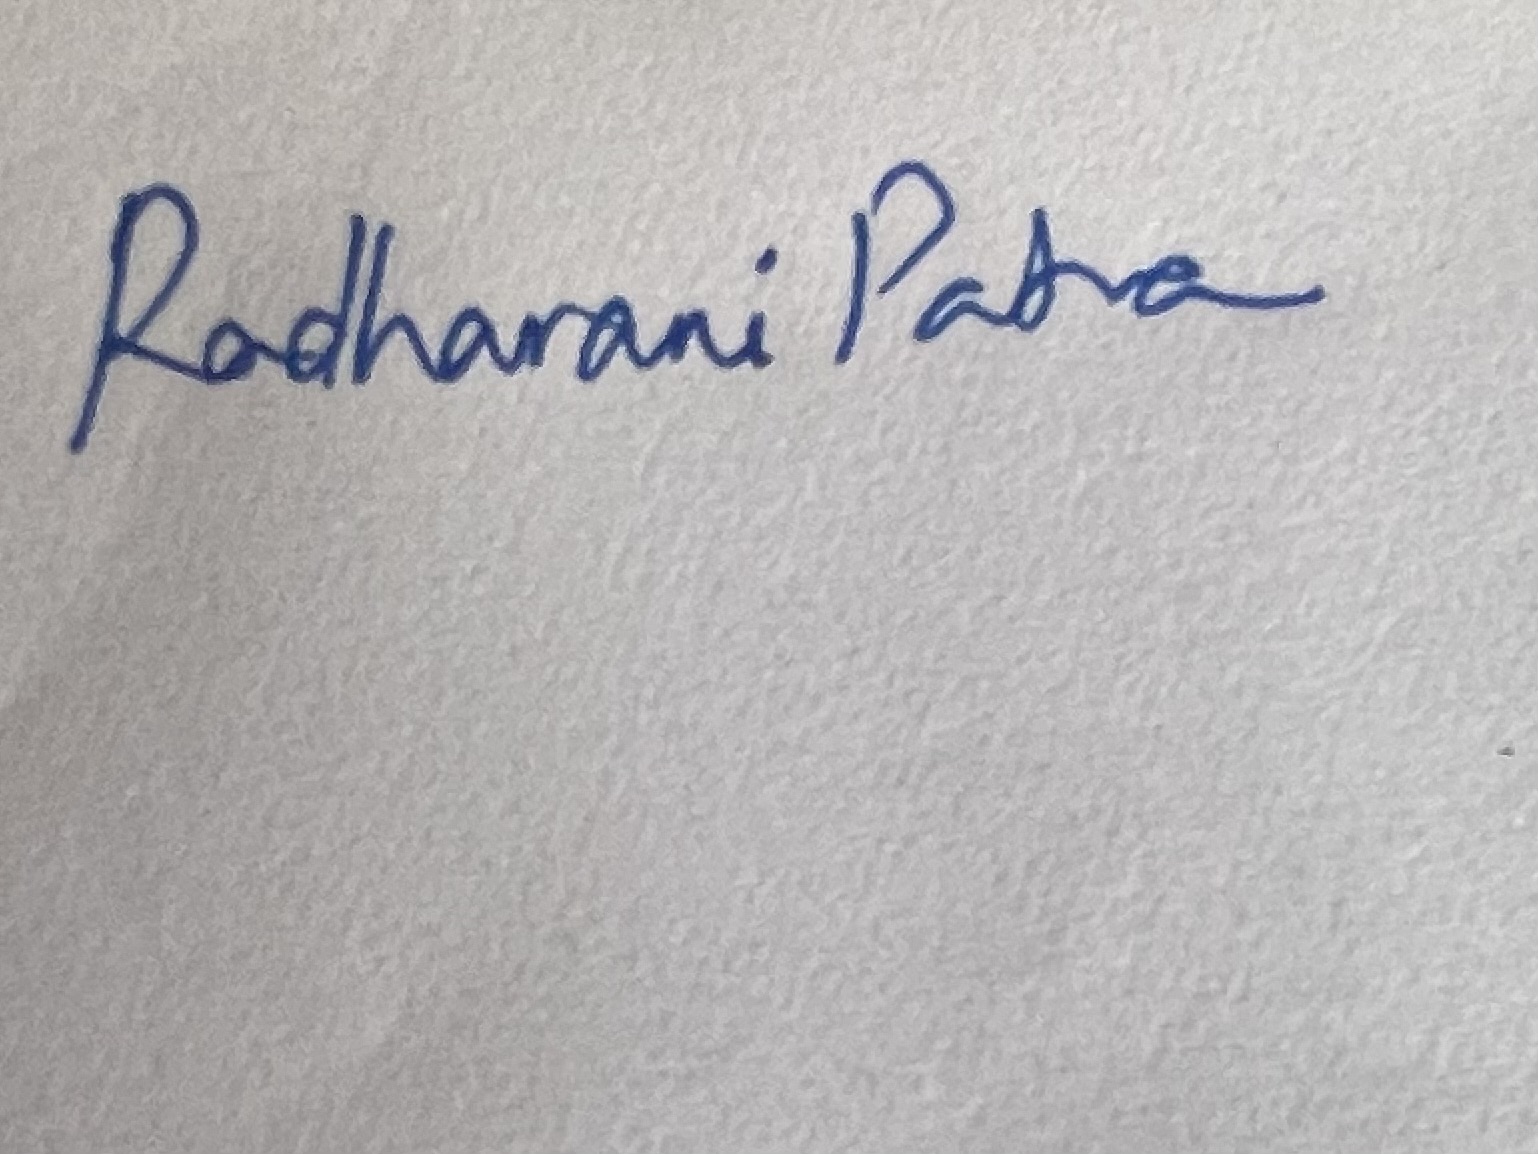 Radharani Patra